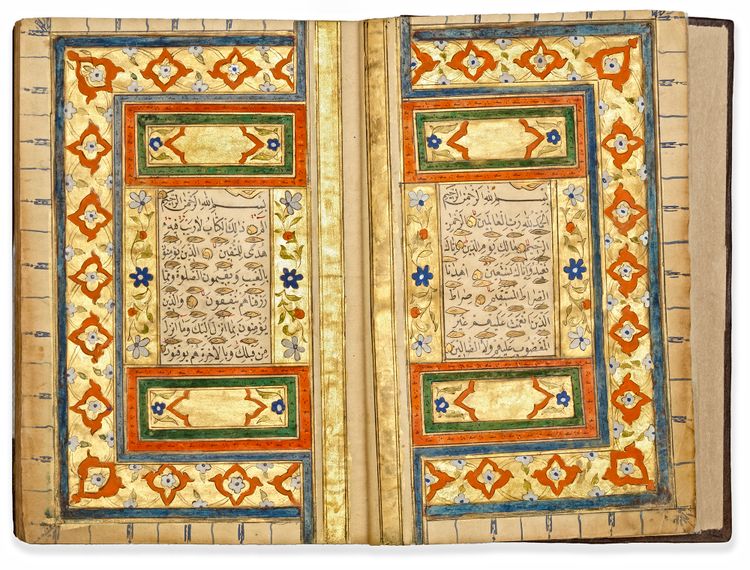 بسم الله الرحمن الرحيم
الحمد لله رب العالمين الرحمن
الرحيم مالك يوم الدين اياك
نعبد واياك نستعين اهدنا
الصراط المستقيم صراط
الذين انعمت عليهم غير
المغضوب عليهم ولا الضالين
بسم الله الرحمن الرحيم
الم ذلك الكتاب لا ريب فيه
هدى للمتقين الذين يؤمنون
بالغيب ويقيمون الصلوة ومما
رزقناهم ينفقون والذين
يؤمنون بما انزل اليك وما انزل
من قبلك وبالاخرة هم يوقنون